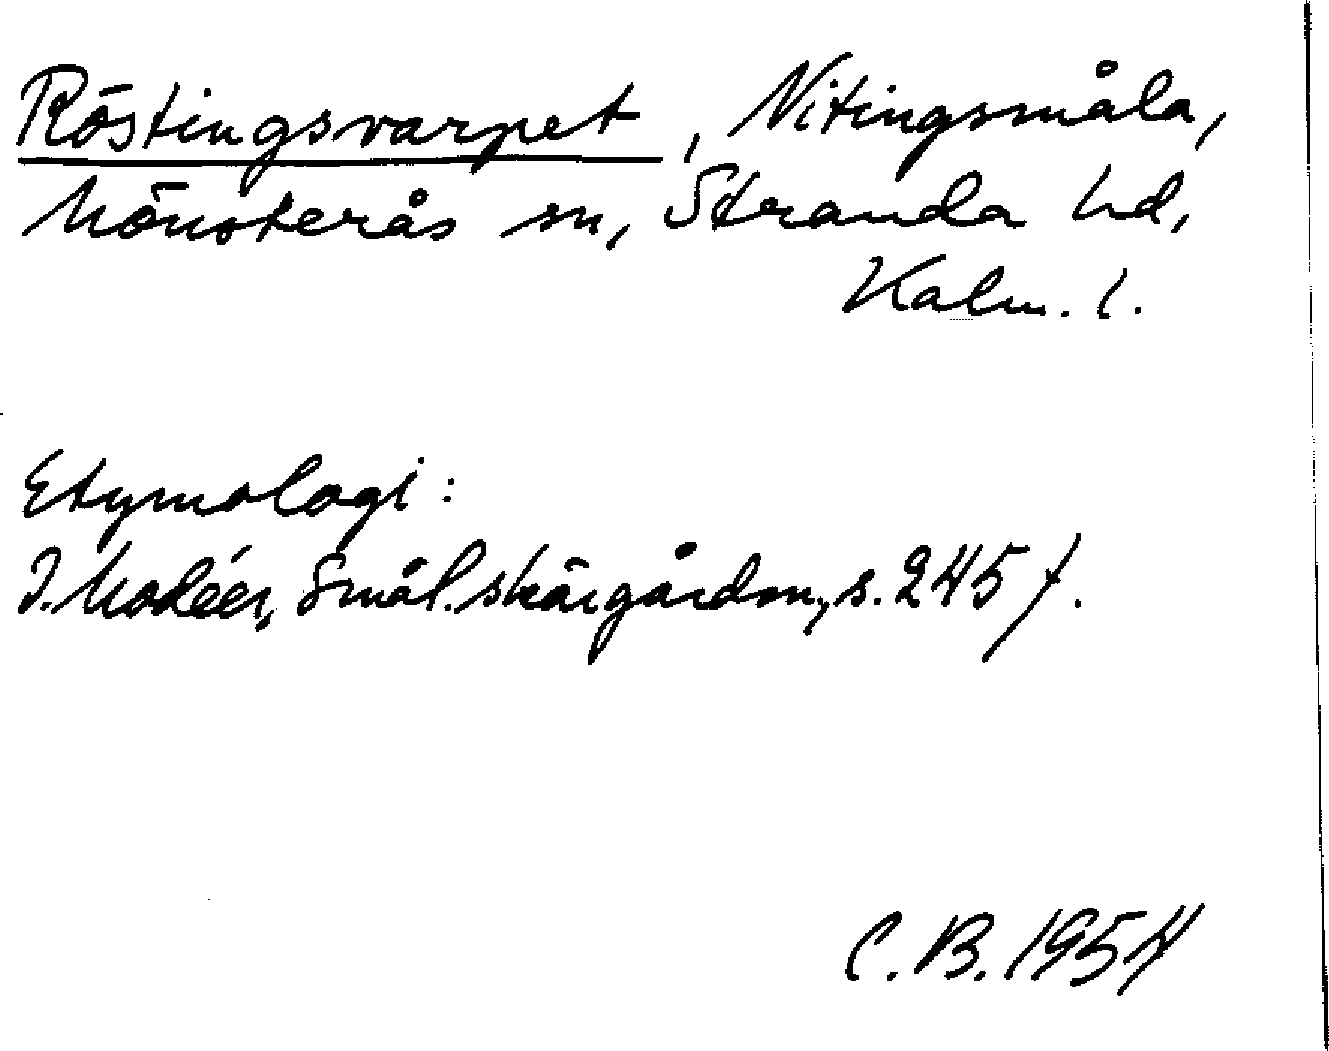 Röstingsvarpet, Nitingsmåla,
Mönsterås sn, Stranda hd,
Kalm. l.
Etymologi:
I. Modéer, Smål. skärgården, s. 245 f.
C. B. 1954